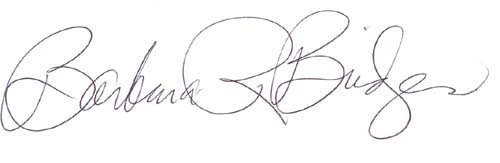 Barbara R Bridges